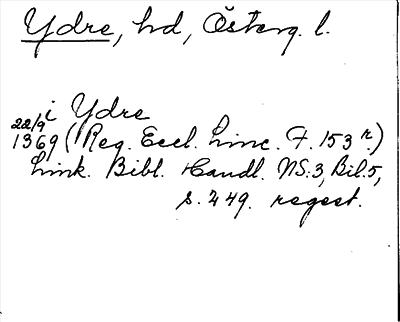 Ydre, hd, Österg. l.
i Ydre
22/9
1369 (Reg. Eccl. Linc. F. 153 r.)
Link. Bibl. Handl. NS:3, Bil. 5,
s. 249. regest.